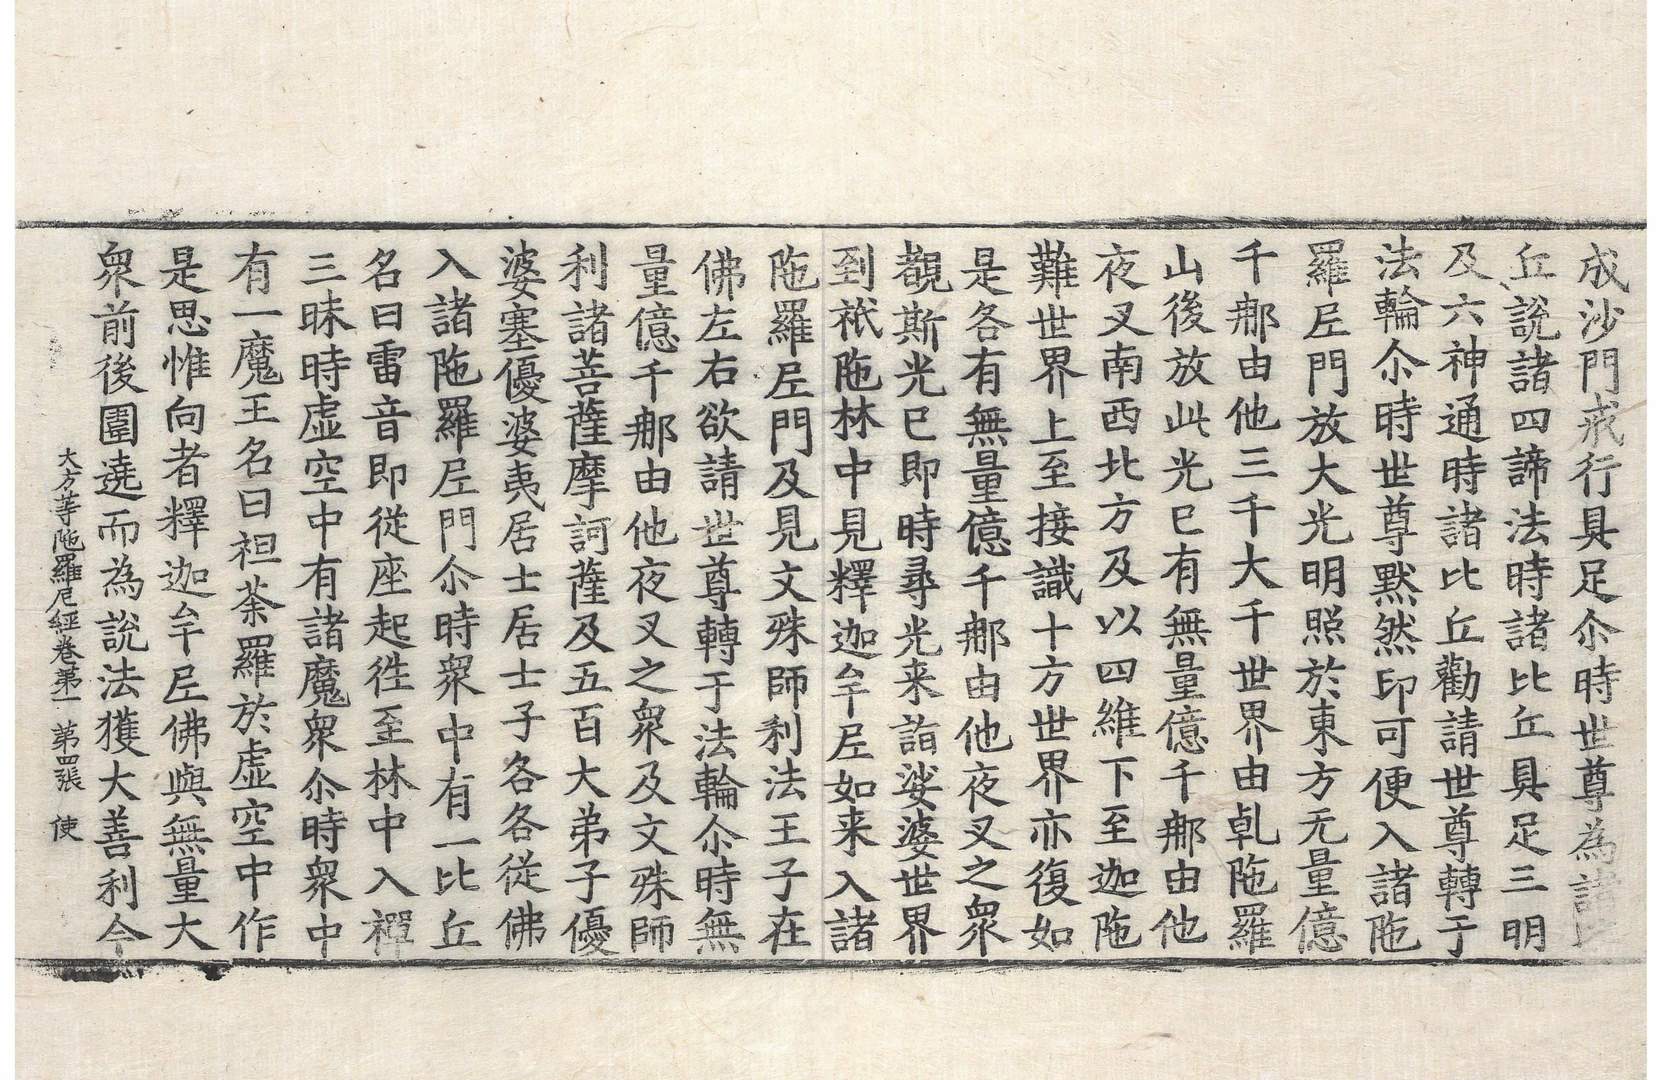 成沙門戒行具足尒時世尊為諸比
丘說諸四諦法時諸比丘具足三明
及六神通時諸比丘勸請世尊轉于
法輪尒時世尊默然印可便入諸陁
羅𡰱門放大光明照於東方无量億
千那由他三千大千世界由乹陁羅
山後放此光已有無量億千那由他
夜叉南西北方及以四維下至迦陁
難世界上至接識十方世界亦復如
是各有無量億千那由他夜叉之衆
覩斯光已即時尋光来詣娑婆世界
到祇陁林中見釋迦牟𡰱如来入諸
陁羅𡰱門及見文殊師利法王子在
佛左右欲請世尊轉于法輪尒時無
量億千那由他夜叉之衆及文殊師
利諸菩薩摩訶薩及五百大弟子優
婆塞優婆夷居士居士子各各從佛
入諸陁羅𡰱門尒時衆中有一比丘
名曰雷音即從座起徃至林中入禪
三昧時虛空中有諸魔衆尒時衆中
有一魔王名曰袒荼羅於虛空中作
是思惟向者釋迦牟𡰱佛與無量大
衆前後圍遶而為說法獲大善利今
大方等陁羅尼經卷第一 第四張 使